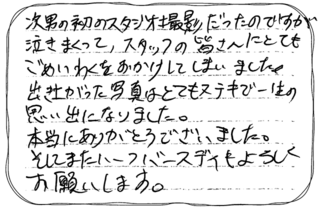 次男の初のスタジオ撮影だったのですが
泣きまくって、スタッフの皆さんにとても
ごめいわくをおかけしてしまいました。
出き上がった写真はとてもステキで一生の
思い出になりました。
本当にありがとうございました。
そしてまたハーフバースディもよろしく
お願いします。